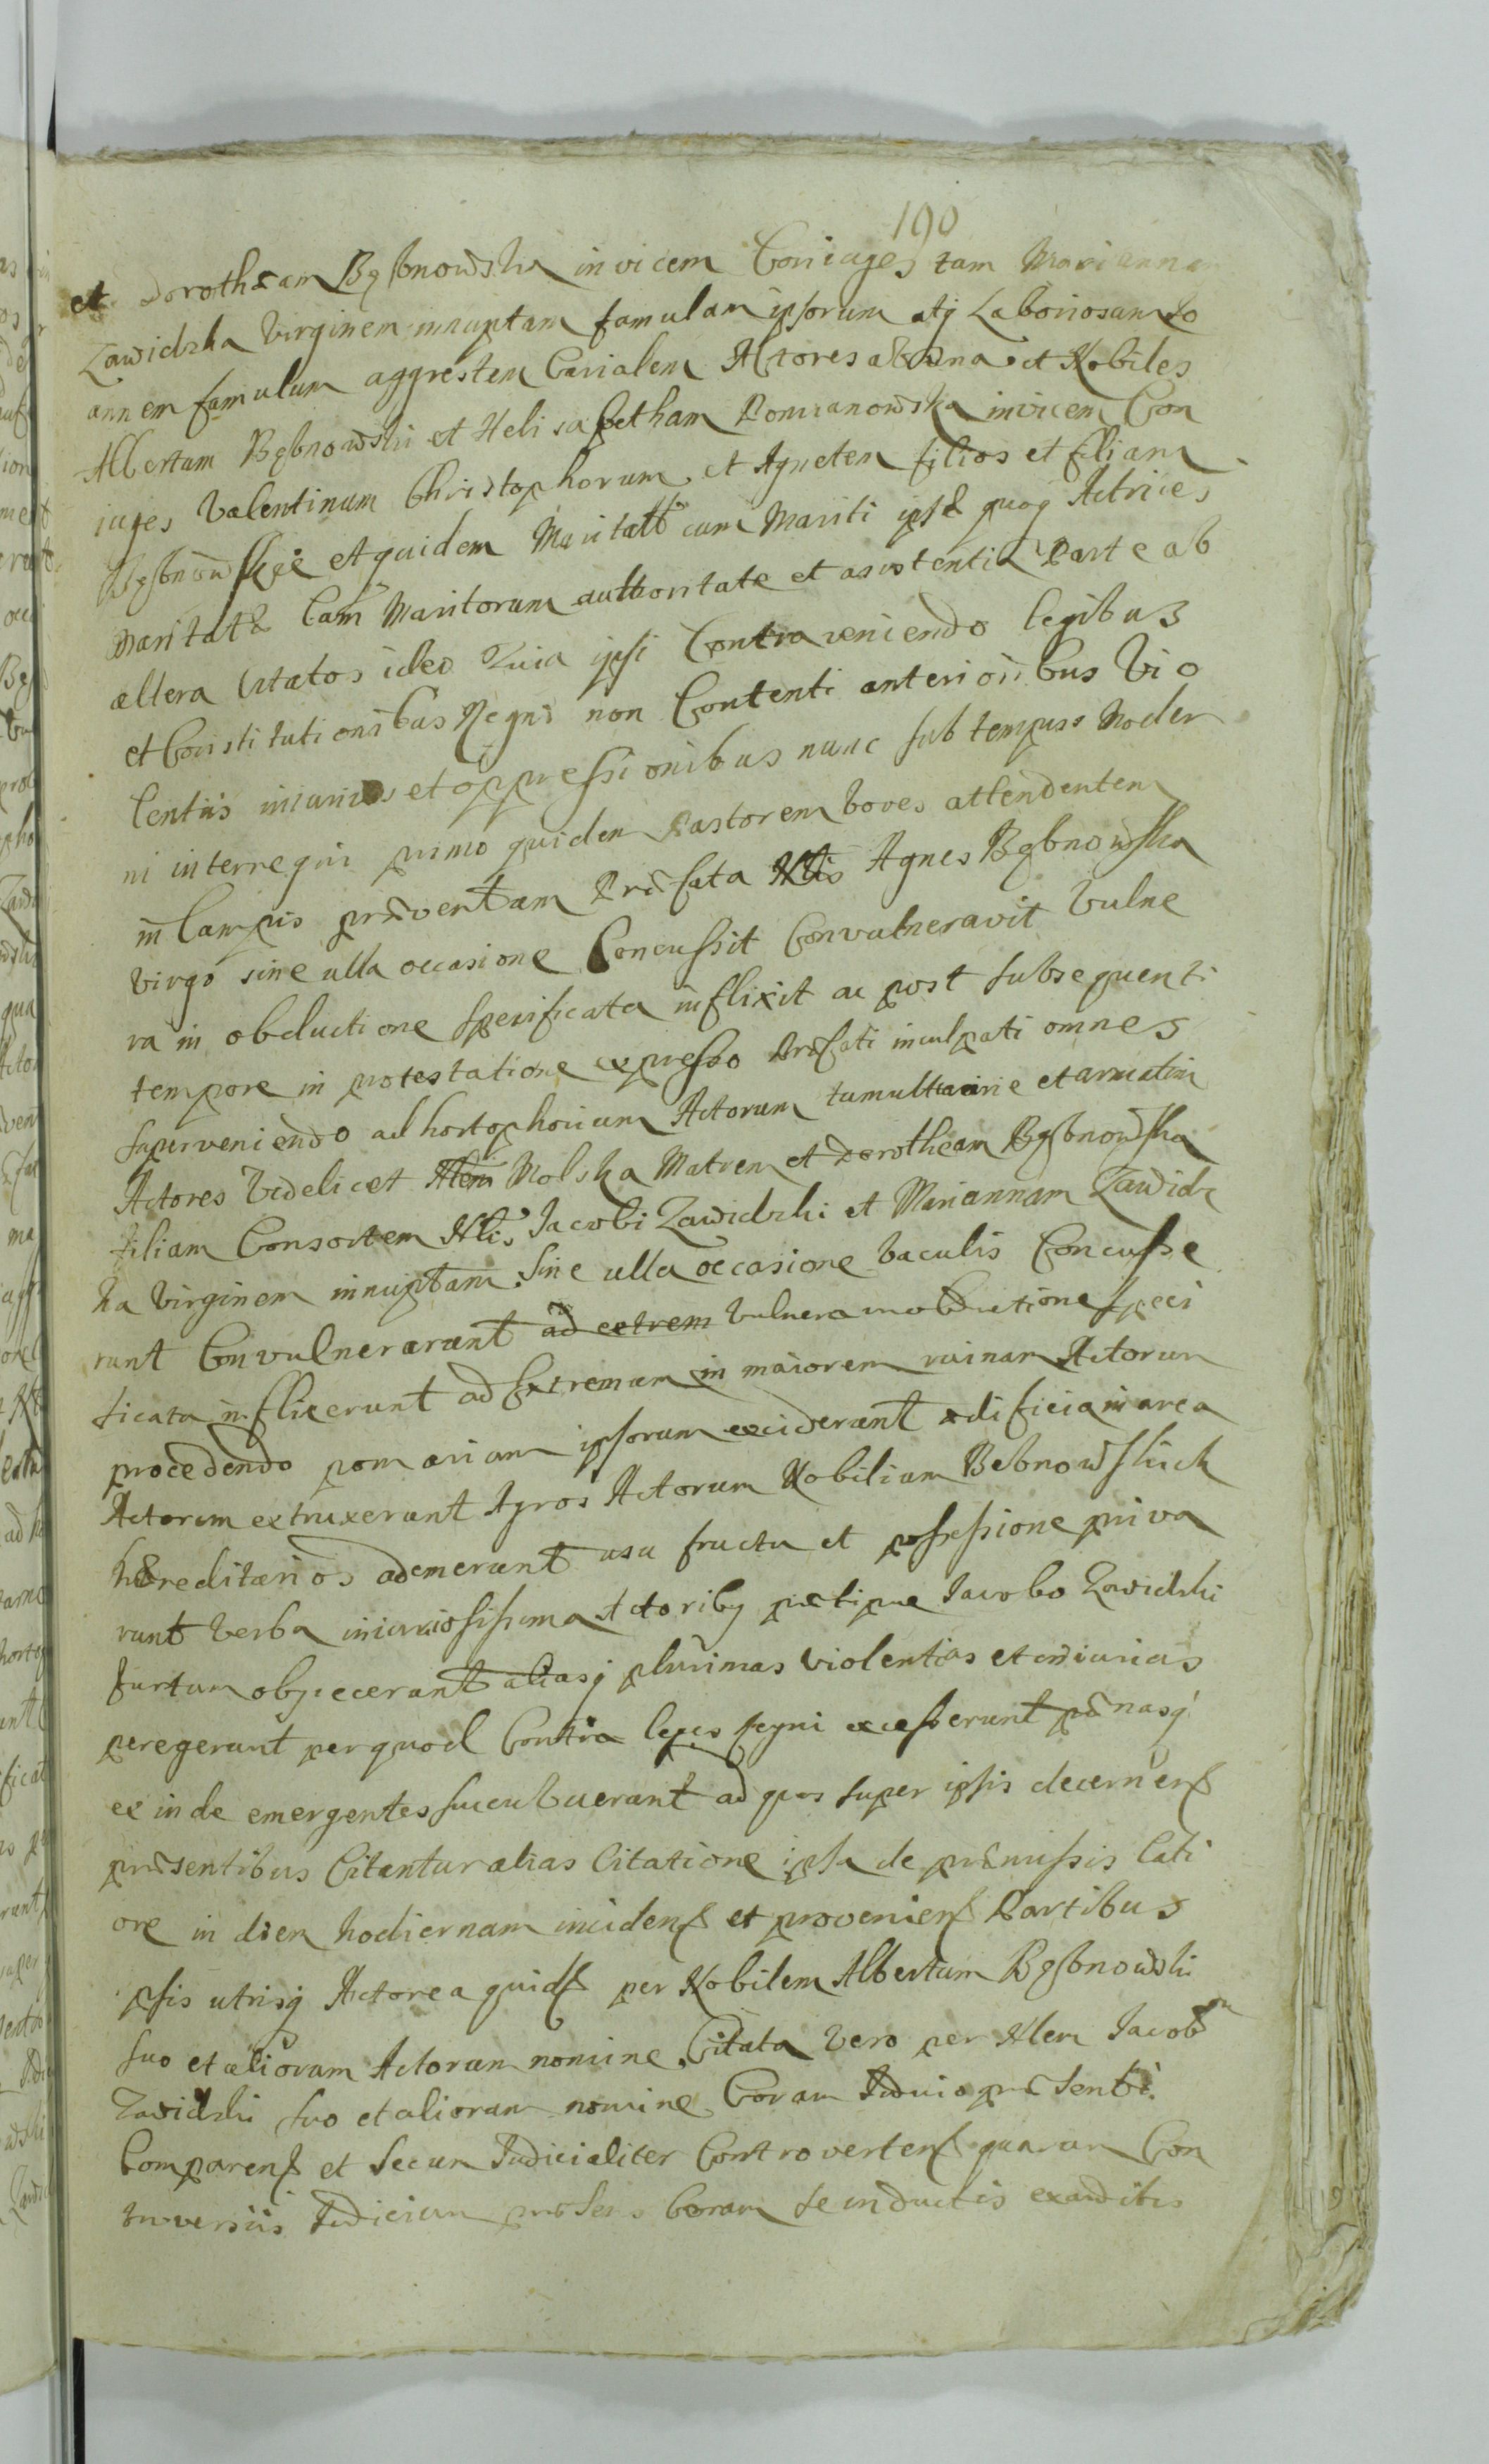 190
et Dorotheam Bębnowska invicem Coniuges tam Mariannam
Zawidzka Virginem innuptam famulam ipsorum atq Laboriosam Jo
annem famulum aggrestem Curialem Actores ab una et Nobiles
Albertum Bębnowski et Helisabetham Romanowska invicem Con
iuges Valentinum Christophorum et Agnetem filios et filiam
Bębnowskie et quidem Maritatã cum Mariti ipsæ quoq Actrices
Maritatæ Cum Maritorum authoritate et assistentia Parte ab
altera Citatos ideo Quia ipsi Contraveniendo legibus
et Constitutionibus Regni non Contenti anterioribus Vio
lentiis iniuriis et oppressionibus nunc sub tempus Moder
ni interregni primo quidem Pastorem boves attendentem
in Campis præventam Præfata Nlis Agnes Bębnowska
Virgo sine ulla occasione Concussit Convulneravit Vulne
ra in obductione specificata inflixit ac post subsequenti
tempore in protestatione expresso Præfati inculpati omnes
superveniendo ad hortophorium Actorum tumultuarie et armatim
Actores Videlicet Nlem Molska Matrem et Dorotheam Bębnowska
filiam Consortem Nlis Jacobi Zawidzki et Mariannam Zawidz
ka Virginem innuptam sine ulla occasione baculis Concusse
runt Convulnerarunt ad extrem Vulnera in obductione speci
ficata inflixerunt ad Extremam in maiorem ruinam Actorum
procedendo pomarium ipsorum exciderunt ædificia in area
Actorum extruxerunt Agros Actorum Nobilium Bębnowskich
hæreditarios ademerunt usu fructu et possessione priva
runt Verba iniuriosissima Actoribq præcipue Jacobo Zawidzki
furtum obyiecerunt aliasq plurimas Violentias et iniurias
peregerunt per quod Contra leges regni excesserunt pœnasq
ex inde emergentes succubuerunt ad quas super ipsis decernens
præsentibus Citantur alias Citatione ipsa de præmissis lati
ore in diem hodiernam incidens et proveniens Partibus
ipsis utrisq Actorea quids per Nobilem Albertum Bębnowski
suo et aliorum Actorum nomine Citata Vero per Nlem Jacobum
Zawidzki suo et aliorum nomine Coram Judicio præsenti
Comparens et secum Judicialiter Controvertens quarum Con
troversiis Judicium præsens Coram se inductis exauditis